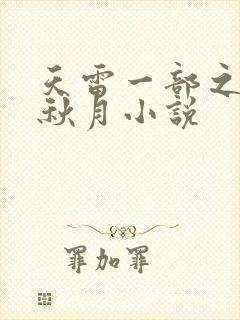 天雷一部之
秋月小说
罪加罪